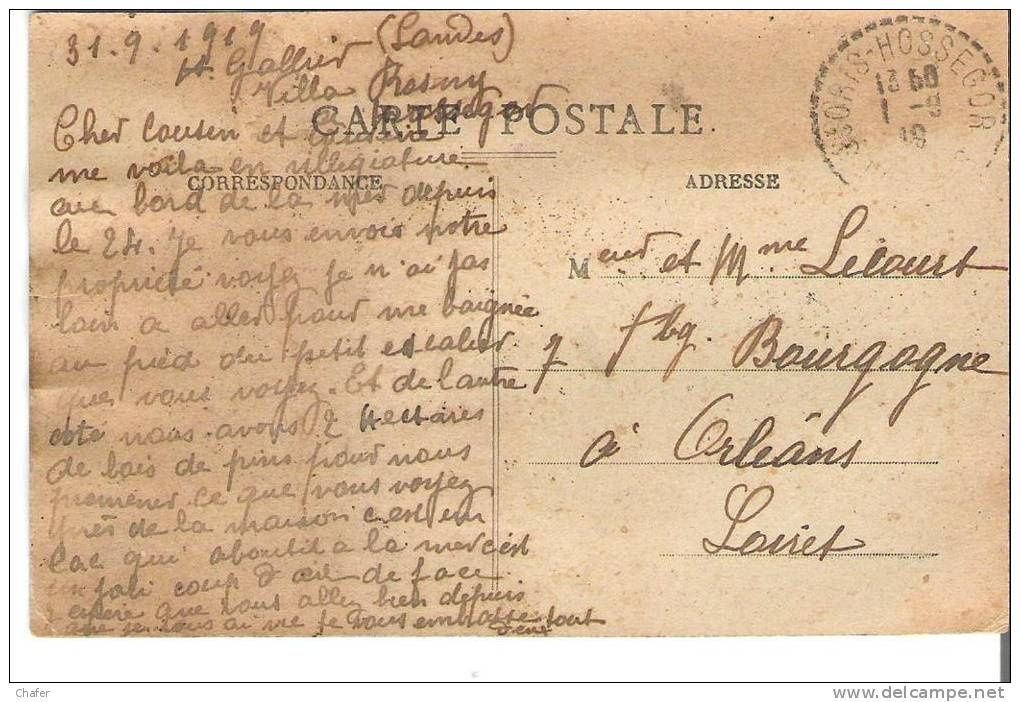 31.9.1919
(Landes)
Villa
CARTE POSTALE
Cher Cousin et
me voila en villegiature
CORRESPONDANCE
au bord de la mer depuis
le 24. Je vous envois notre
propriété voyez je n'ai pas
loin a aller pour me baignée
au pied du petit escalier
que vous voyez. Et de l'autre
coté nous avons 2 Hectares
de bois de pins pour nous
promener ce que vous voyez
près de la maison c'est un
Lac qui aboutit a la mer c'est
un joli coup d'œil de face
que vous allez bien depuis
que je vous ai vue je vous embrasse
tout
SOORTS-HOSSEGOR
ADRESSE
et Mme Lécourt
7 fbg. Bourgogne
à Orléans
Loiret
Chafer
http://www.delcampe.net